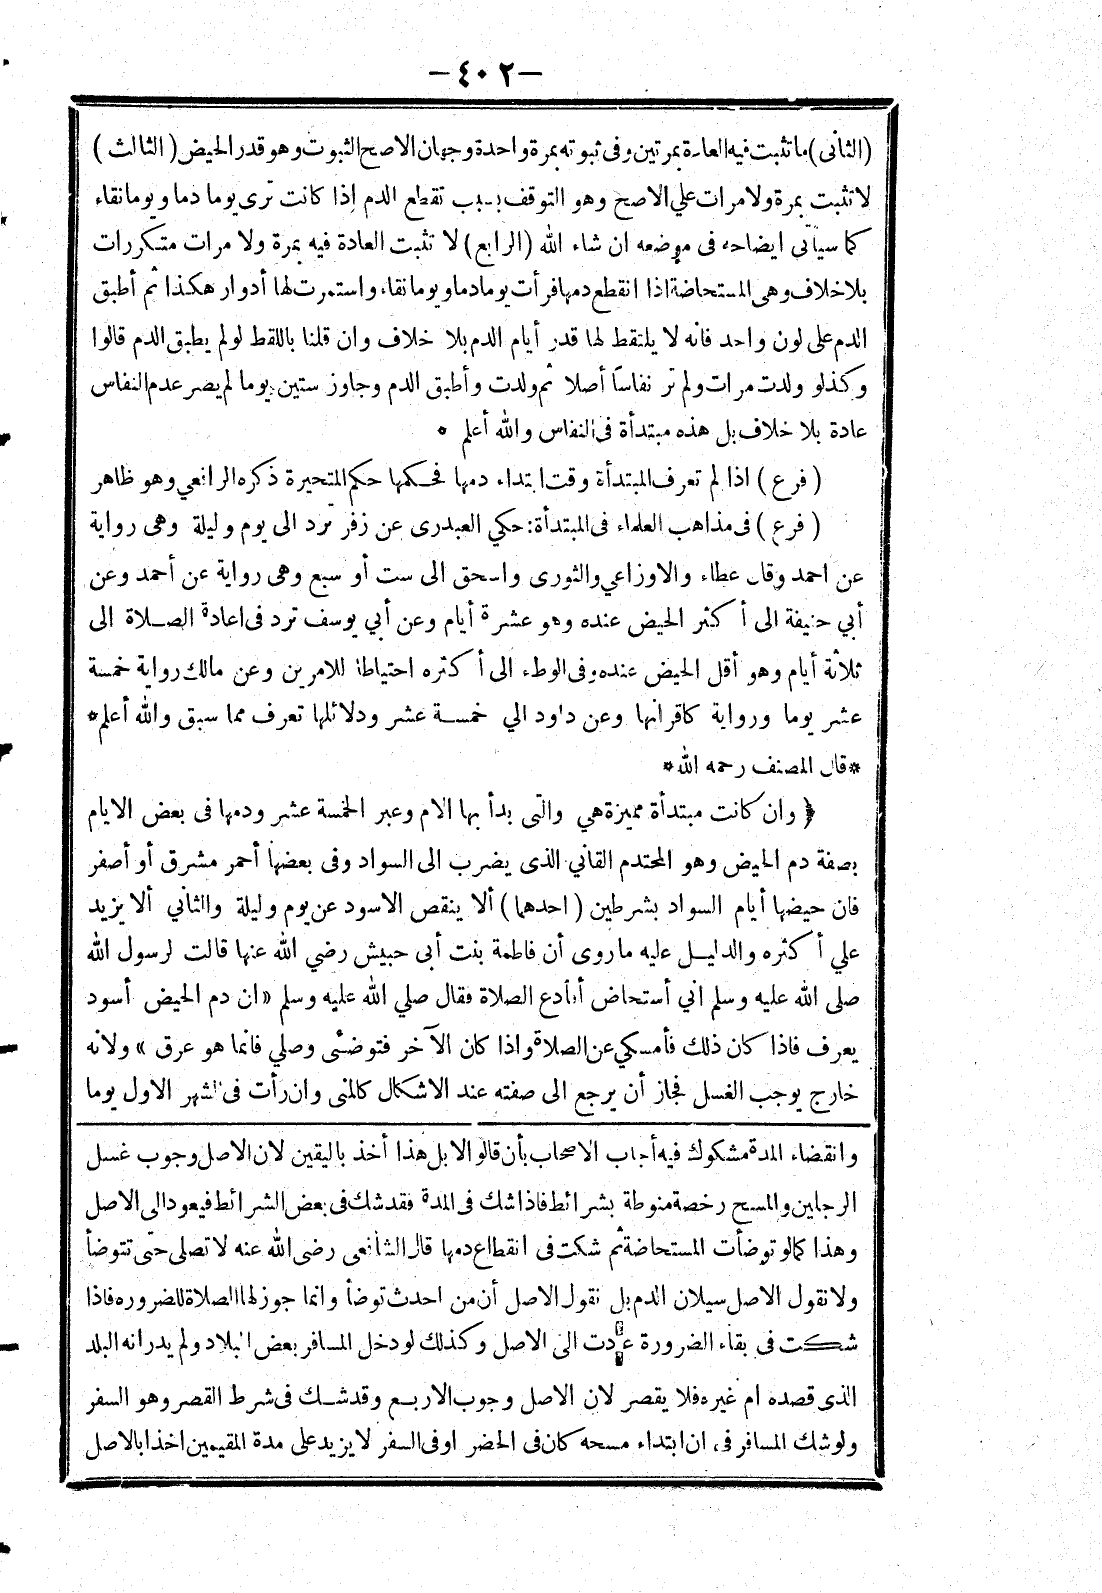 —٤٠٢—
(الثانى) ما تثبت فيه العادة بمرتين وفى ثبوته بمرة واحدة وجهان الاصح الثبوت وهو قدر الحيض (الثالث)
لا تثبت بمرة ولا مرات علي الاصح وهو التوقف بسبب تقطع الدم إذا كانت ترى يوما دما ويوما نقاء
كما سيأتى ايضاحه فى موضعه ان شاء الله (الرابع) لا تثبت العادة فيه بمرة ولا مرات متكررات
بلا خلاف وهى المستحاضة اذا انقطع دمها فرأت يوما دما ويوما نقاء واستمرت لها أدوار هكذا ثم أطبق
الدم على لون واحد فانه لا يلتقط لها قدر أيام الدم بلا خلاف وان قلنا باللقط لو لم يطبق الدم قالوا
وكذلو ولدت مرات ولم تر نفاسا أصلا ثم ولدت وأطبق الدم وجاوز ستين يوما لم يصر عدم النفاس
عادة بلا خلاف بل هذه مبتدأة فى النفاس والله أعلم *
(فرع) اذا لم تعرف المبتدأة وقت ابتداء دمها فحكمها حكم المتحيرة ذكره الرافعي وهو ظاهر
(فرع) فى مذاهب العلماء فى المبتدأة: حكي العبدرى عن زفر ترد الى يوم وليلة وهى رواية
عن احمد وقال عطاء والاوزاعي والثورى واسحق الى ست أو سبع وهى رواية عن أحمد وعن
أبي حنيفة الى أكثر الحيض عنده وهو عشرة أيام وعن أبي يوسف ترد فى اعادة الصلاة الى
ثلاثة أيام وهو أقل الحيض عنده وفى الوطء الى أكثره احتياطا للامرين وعن مالك رواية خمسة
عشر يوما ورواية كاقرانها وعن داود الي خمسة عشر ودلائلها تعرف مما سبق والله أعلم*
*قال المصنف رحمه الله*
﴿ وان كانت مبتدأة مميزة هي والتى بدأ بها الدم وعبر الخمسة عشر ودمها فى بعض الايام
بصفة دم الحيض وهو المحتدم القاني الذى يضرب الى السواد وفى بعضها أحمر مشرق أو أصفر
فان حيضها أيام السواد بشرطين (احدهما) ألا ينقص الاسود عن يوم وليلة والثاني ألا يزيد
علي أكثره والدليل عليه ما روى أن فاطمة بنت أبى حبيش رضي الله عنها قالت لرسول الله
صلى الله عليه وسلم اني أستحاض أفأدع الصلاة فقال صلي الله عليه وسلم «ان دم الحيض أسود
يعرف فاذا كان ذلك فأمسكي عن الصلاة واذا كان الآخر فتوضئى وصلي فانما هو عرق» ولانه
خارج يوجب الغسل فجاز أن يرجع الى صفته عند الاشكال كالمنى وان رأت فى الشهر الاول يوما
وانقضاء المدة مشكوك فيه أجاب الاصحاب بأن قالوا لابل هذا أخذ باليقين لان الاصل وجوب غسل
الرجلين والمسح رخصة منوطة بشرائط فاذا شك فى المدة فقد شك فى بعض الشرائط فيعود الى الاصل
وهذا كما لو توضأت المستحاضة ثم شكت فى انقطاع دمها قال الشافعى رضى الله عنه لا تصلى حتى تتوضأ
ولا نقول الاصل سيلان الدم بل نقول الاصل أن من احدث توضأ وانما جوز لها الصلاة للضروره فاذا
شكت فى بقاء الضرورة عادت الى الاصل وكذلك لو دخل المسافر بعض البلاد ولم يدر انه البلد
الذى قصده ام غيره فلا يقصر لان الاصل وجوب الاربع وقد شك فى شرط القصر وهو السفر
ولو شك المسافر فى ان ابتداء مسحه كان فى الحضر او فى السفر لا يزيد على مدة المقيمين اخذا بالاصل